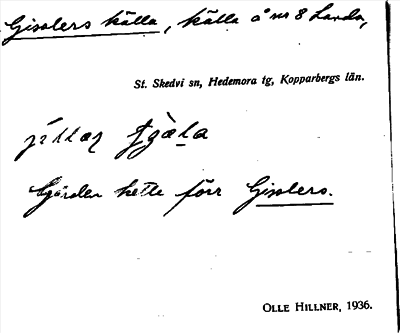 Gisslers källa, källa å nr 8 Landa,
St. Skedvi sn, Hedemora tg, Kopparbergs län.
Gården hette förr Gisslers.
OLLE HILLNER, 1936.